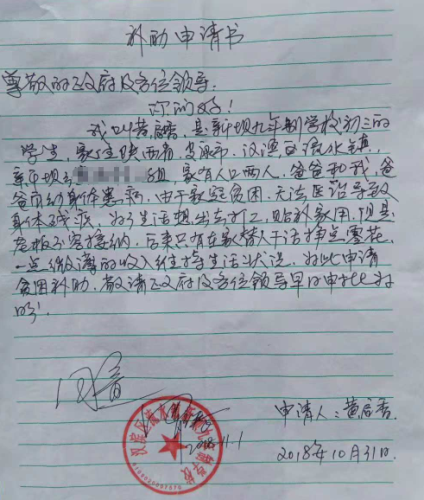 补助申请书
尊敬的政府及各位领导:
你们好!
我叫黄启香,是新坝九年制学校初三的
学生,家住陕西省安康市汉滨区流水镇
新坝 组,家有人口两人,爸爸和我,爸
爸自幼身体患病,由于家庭贫困,无法医治导致
身体残疾,为了生活想出去打工,贴补家用,但是
老板不愿接纳,后来只有在家替人干活挣点零花,
一点微薄的收入维持生活状况,为此申请
贫困补助,敬请政府及各位领导早日审批为
盼!
同意
2018.11.1
申请人:黄启香
2018年10月31日